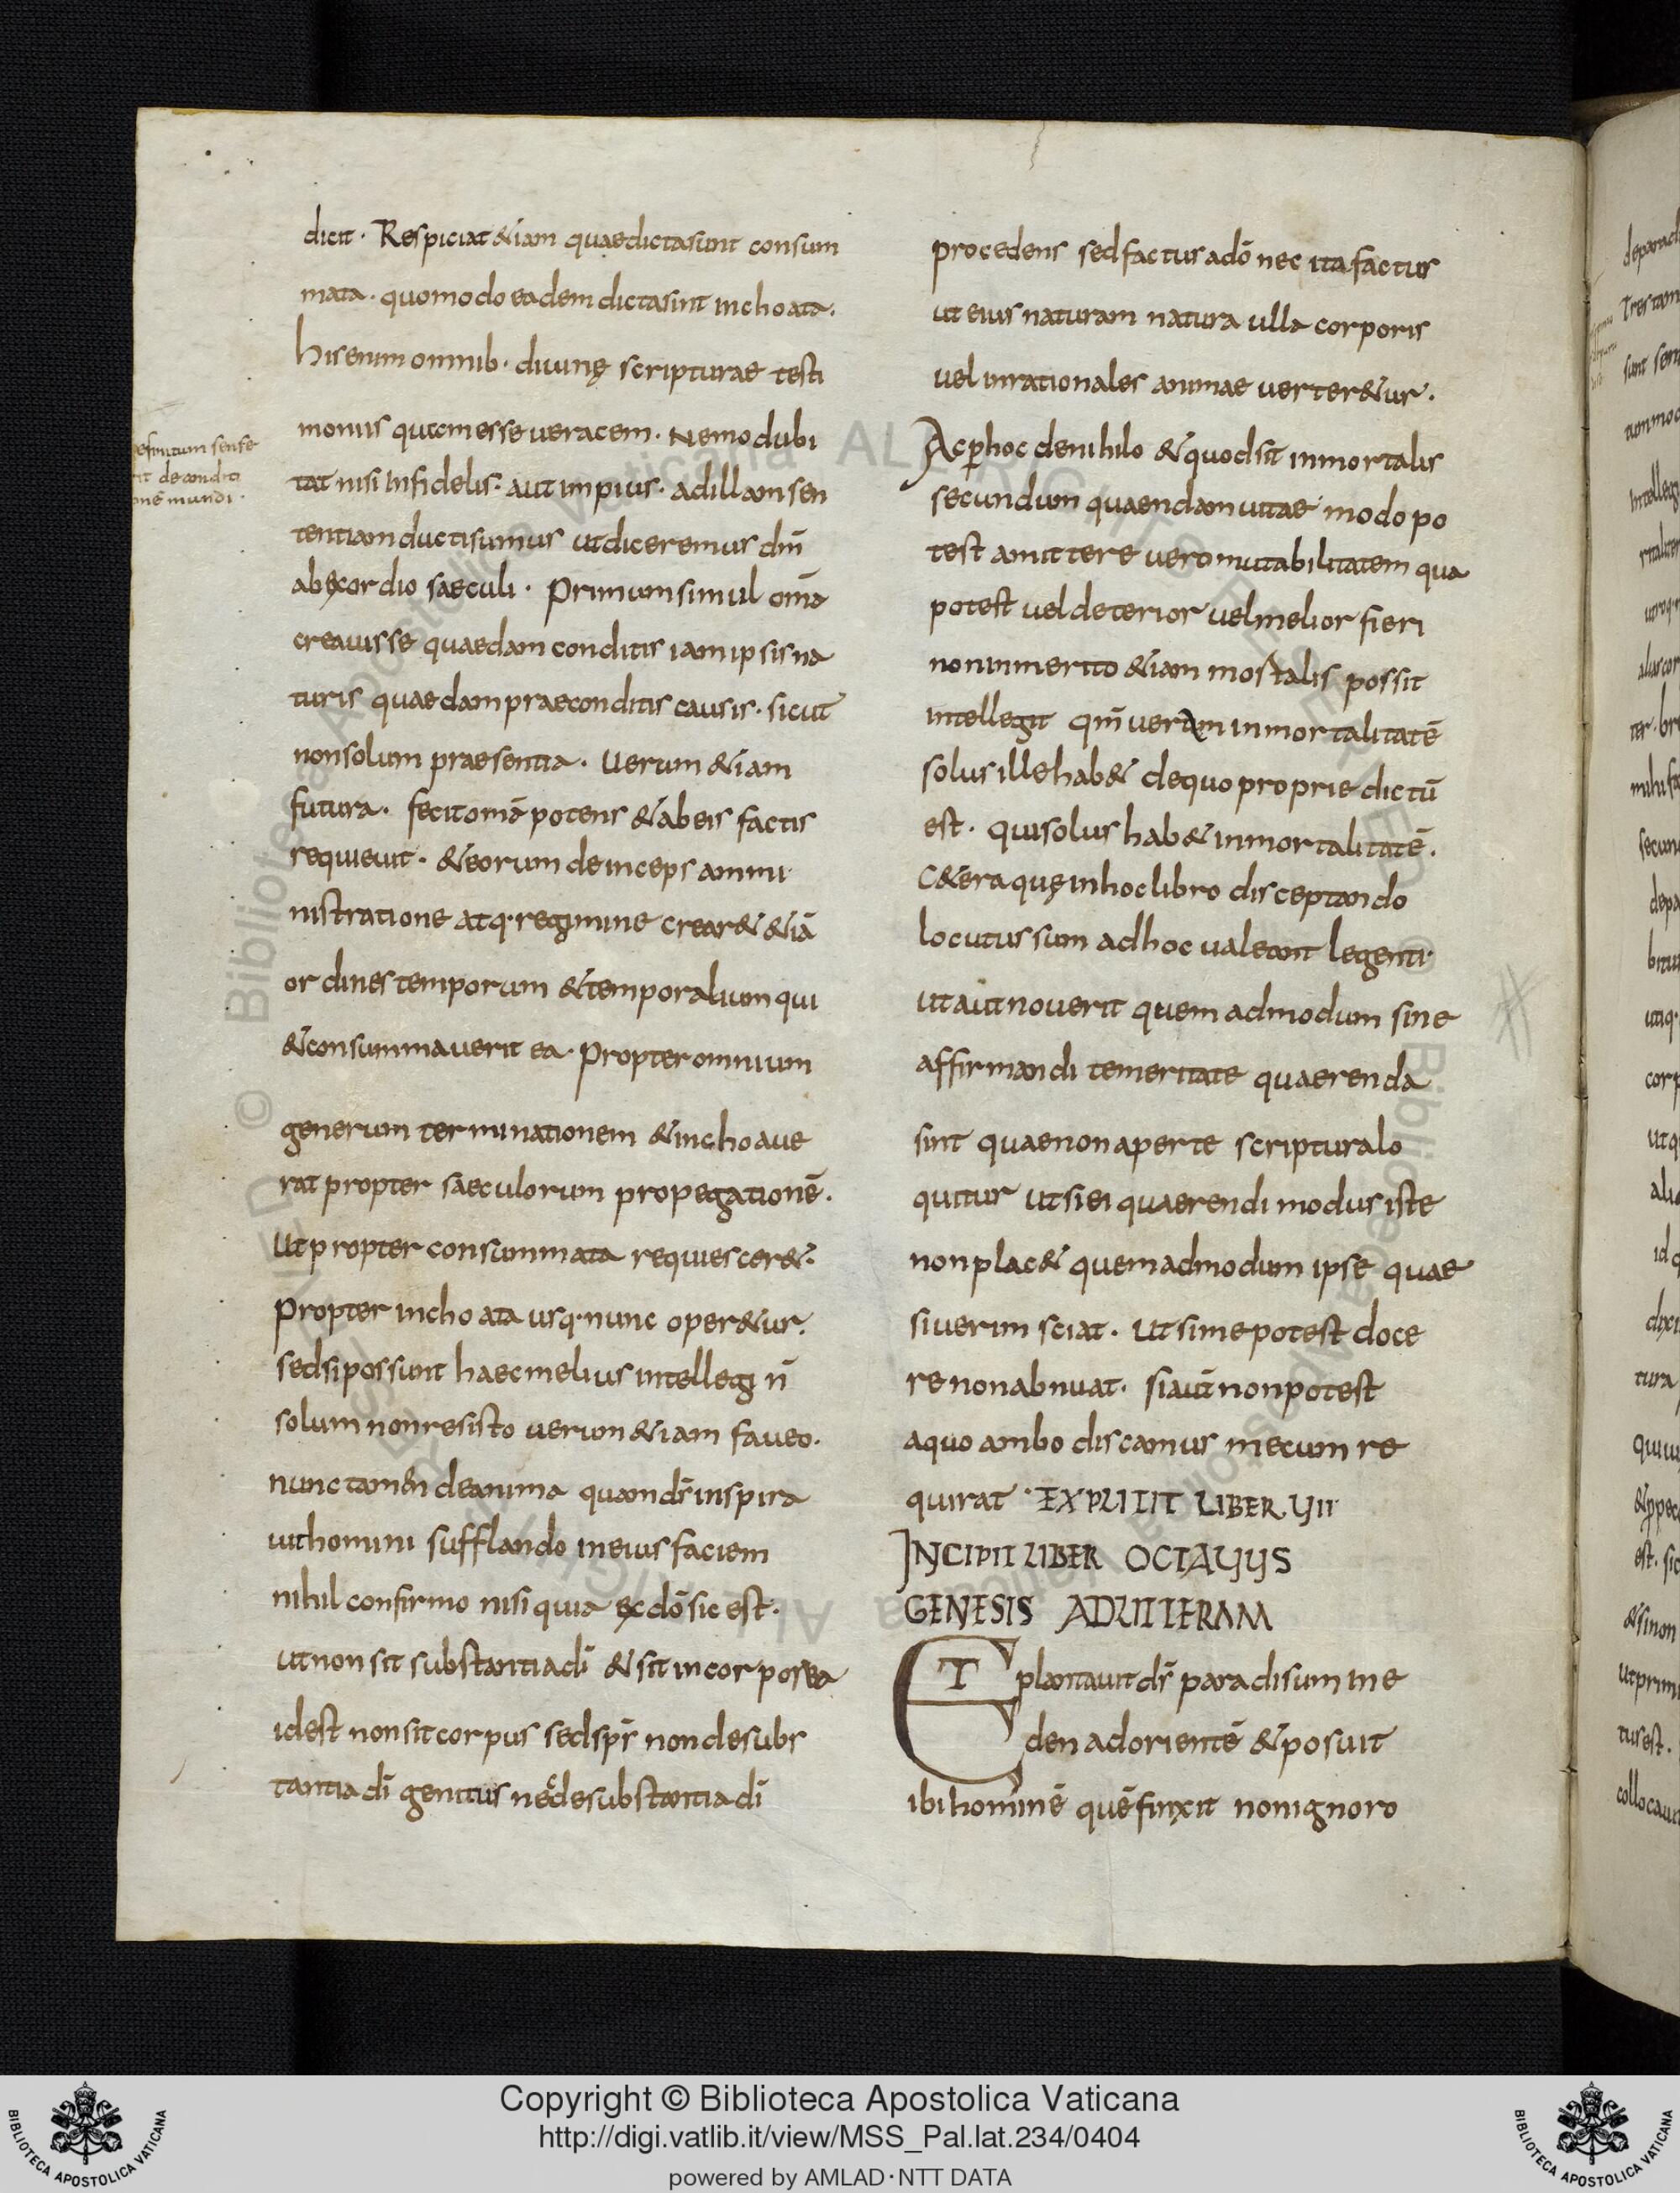 dicit · Respiciat &iam quaedictasunt consum
mata · quomodo eadem dictasint inchoata ·
hisenim omnib · diuinę scripturae testi
moniis quęmesse ueracem · Nemo dubi
tat nisi infidelis · aut impius · adillam sen
tentiam ductisumus utdiceremus dm̄
abexordio saeculi · Primum simul om̄a
creauisse quaedam conditis iam ipsis na
turis quaedam praeconditis causis · sicut
nonsolum praesentia · Uerum &iam
futura · fecit om̄a potens & abeis factis
requieuit · & eorum deinceps ammi
nistratione atq· regimine crear& &iā
ordines temporum & temporalium qui
& consummauerit ea · Propter omnium
generum terminationem & inchoaue
rat propter saeculorum propegationē ·
Ut propter consummata requiescer& ·
Propter inchoata usq· nunc oper&ur ·
sedsi possunt haec melius intellegi n̄
solum non resisto uerum &iam faueo ·
nunc tamen deanima quam ds̄ inspira
uit homini sufflando ineius faciem
nihil confirmo nisi quia exdō sic est ·
ut non sit substantia dī & sit incorporea
idest non sit corpus sed sps̄ non desubs
tantia dī genitus nec desubstantia dī
procedens sed factus adō nec ita factus
ut eius naturam natura ulla corporis
uel inrationales animae uerter&ur ·
Ac phoc denihilo & quod sit inmortalis
secundum quaendam uitae modo po
test amittere uero mutabilitatem qua
potest uel deterior uel melior fieri
non inmerito &iam mortalis possit
intellegit qm̄ ueram inmortalitatē
solus ille hab& dequo proprie dictū
est · qui solus hab& inmortalitatē ·
C&era quę inhoc libro disceptando
locutus sum adhoc ualeant legenti
ut aut nouerit quem admodum sine
affirmandi temeritate quaerenda
sint quae non aperte scriptura lo
quitur ut si ei quaerendi modus iste
non plac& quemadmodum ipse quae
siuerim sciat · Ut sime potest doce
re non abnuat · si aut̄ non potest
aquo ambo discamus mecum re
quirat · EXPLICIT LIBER VII
INCIPIT LIBER OCTAUUS
GENESIS AD LITTERAM
ET plantauit ds̄ paradisum ine
den adorientē & posuit
ibi hominē quē finxit non ignoro
efinitum sense
it decondit
onē mundi ·
Copyright © Biblioteca Apostolica Vaticana
http://digi.vatlib.it/view/MSS_Pal.lat.234/0404
powered by AMLAD·NTT DATA
BIBLIOTECA APOSTOLICA VATICANA
BIBLIOTECA APOSTOLICA VATICANA